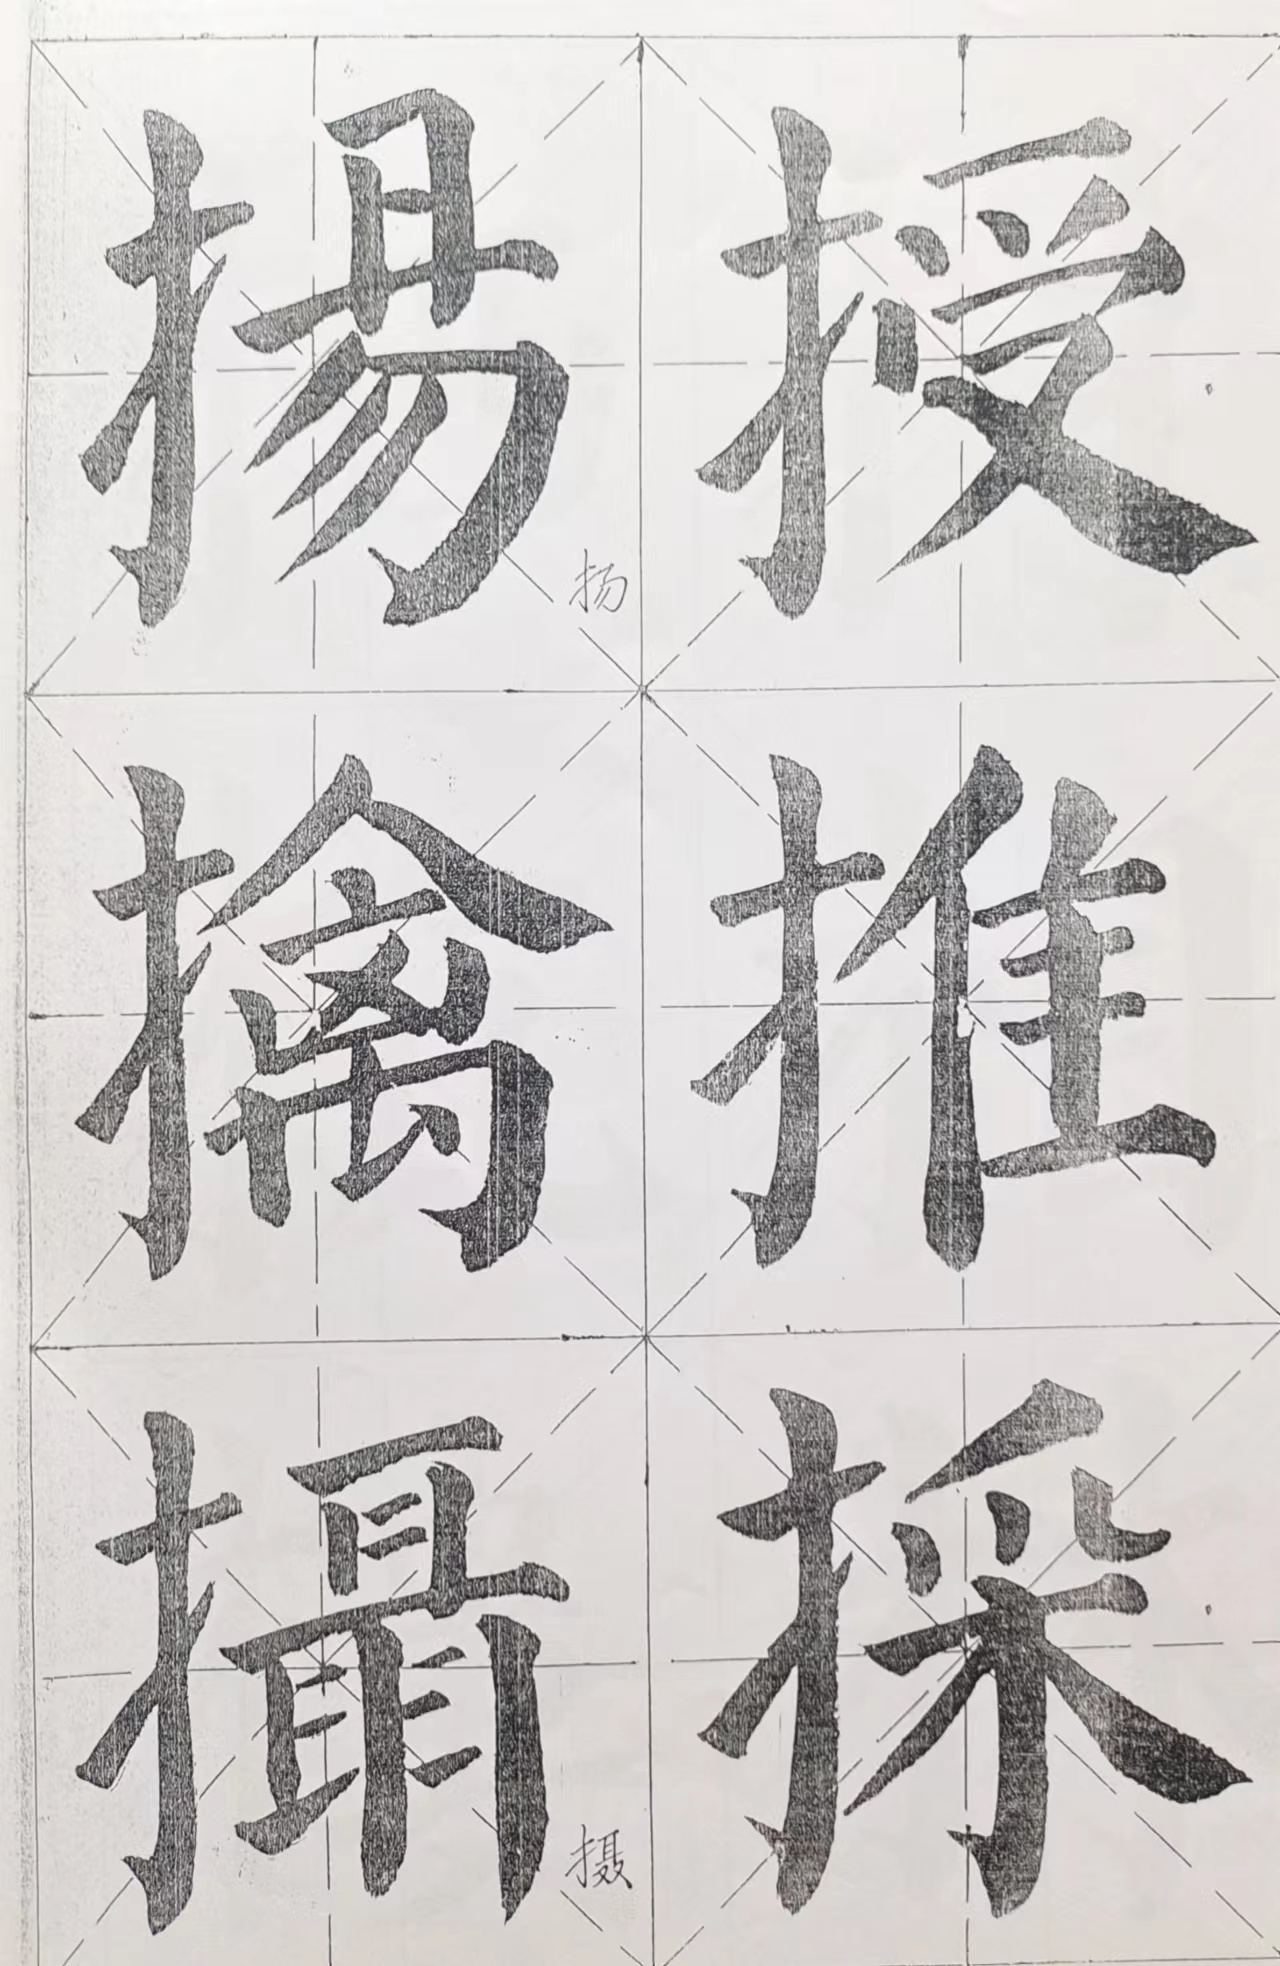 揚授
扬
擒推
攝採
摄